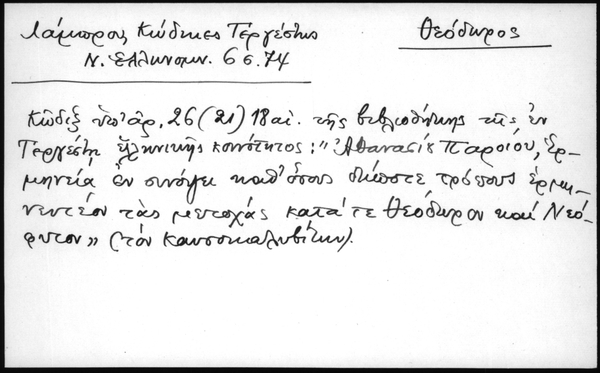 Λάμπρος, Κώδικες Τεργέστης
Θεόδωρος
Ν. Ἑλληνομν. 6 σ. 74
Κῶδιξ ὑπ' ἀρ. 26 (21) 18 αἰ. τῆς βιβλιοθήκης τῆς ἐν
Τεργέστῃ ἑλληνικῆς κοινότητος: "Ἀθανασίου Παρίου, Ἑρ-
μηνεία ἐν συνόψει καθ' ὅσους δήποτε τρόπους ἑρμη-
νευτέον τὰς μετοχάς κατά τε Θεόδωρον καί Νεό-
φυτον» (τόν Καυσοκαλυβίτην).